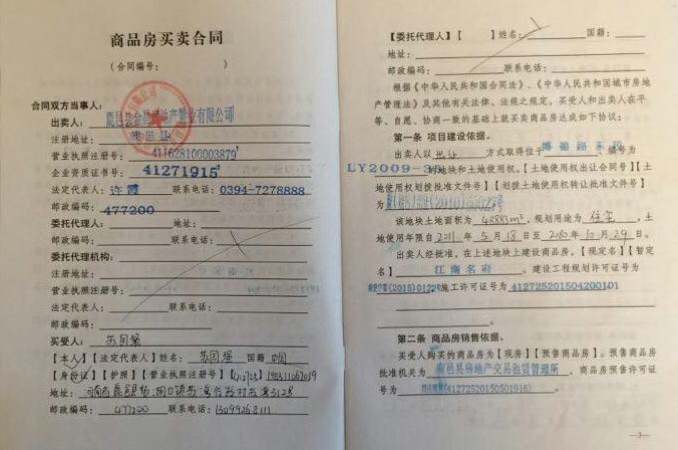 商品房买卖合同
（合同编号： ）
合同双方当事人：
出卖人：鹿邑县 地产置业有限公司
注册地址：鹿邑县
营业执照注册号：411628100003879
企业资质证书号：41271915
法定代表人：许霞 联系电话：0394-7278888
邮政编码：477200
委托代理人： 地址：
邮政编码： 联系电话：
委托代理机构：
注册地址：
营业执照注册号：
法定代表人： 联系电话：
邮政编码：
买受人：
【本人】【法定代表人】姓名： 国籍 中国
【身份证】【护照】【营业执照注册号】
地址：河南省鹿邑县
邮政编码：477200 联系电话：
【委托代理人】【 】姓名： 国籍：
地址：
邮政编码： 联系电话：
根据《中华人民共和国合同法》、《中华人民共和国城市房地
产管理法》及其他有关法律、法规之规定，买受人和出卖人在平
等、自愿、协商一致的基础上就买卖商品房达成如下协议：
第一条 项目建设依据。
出卖人以 出让 方式取得位于
LY2009-35 的地块和土地使用权。【土地使用权出让合同号】【土
地使用权划拨批准文件号】【划拨土地使用权转让批准文件号】
为
该地块土地面积为 ，规划用途为 住宅 ，土
地使用年限自 2011 年 5 月 18 日至 年 10 月 29 日。
出卖人经批准，在上述地块上建设商品房，【现定名】【暂定
名】 江南名府 。建设工程规划许可证号为
施工许可证号为 412725201504200101
第二条 商品房销售依据。
买受人购买的商品房为【现房】【预售商品房】。预售商品房
批准机关为 鹿邑县房地产交易租赁管理所 ，商品房预售许可证
号为
—3—